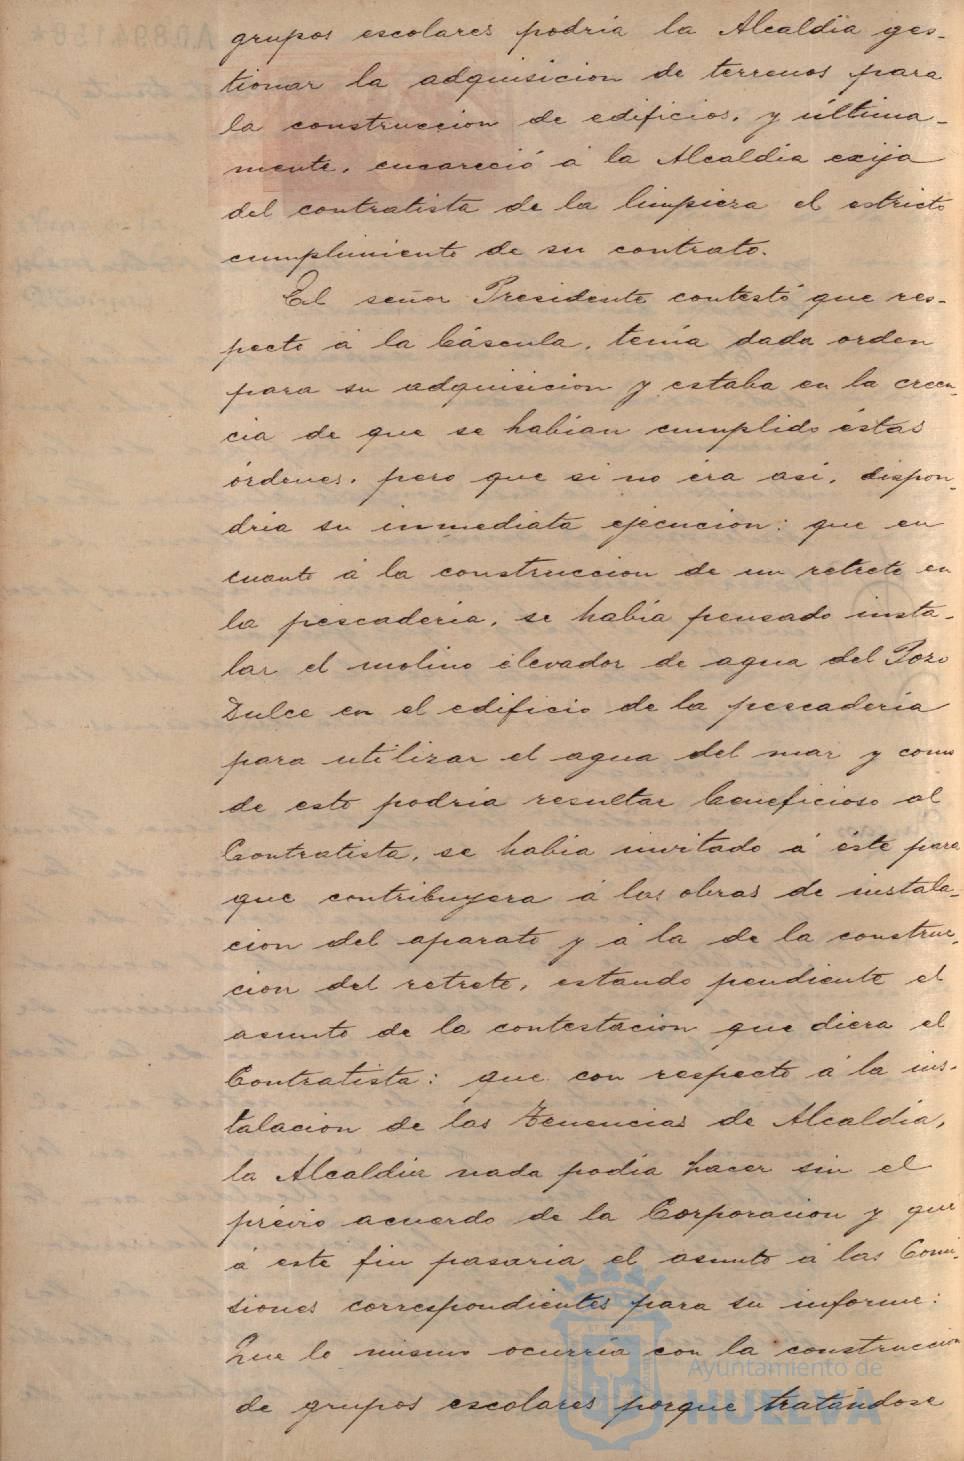 grupos escolares podria la Alcaldía ges-
tionar la adquisicion de terrenos para
la construccion de edificios, y última-
mente, encareció á la Alcaldía exija
del contratista de la limpieza el estricto
cumplimiento de su contrato.
El señor Presidente contestó que res-
pecto á la báscula, tenía dada orden
para su adquisicion y estaba en la creen-
cia de que se habían cumplido éstas
órdenes, pero que si no éra así, dispon-
dría su inmediata ejecucion: que en
cuanto á la construccion de un retrete en
la pescadería, se había pensado insta-
lar el molino elevador de agua del Pozo
Dulce en el edificio de la pescadería
para utilizar el agua del mar y como
de esto podría resultar beneficioso al
Contratista, se había invitado á éste para
que contribuyera á las obras de instala-
cion del aparato y á la de la construc-
cion del retrete, estando pendiente el
asunto de la contestacion que diera el
Contratista: que con respecto á la ins-
talacion de las Tenencias de Alcaldía,
la Alcaldía nada podía hacer sin el
prévio acuerdo de la Corporacion y que
á este fin pasaria el asunto á las Comi-
siones correspondientes para su informe:
Que lo mismo ocurría con la construccion
de grupos escolares porque tratándose
Ayuntamiento de
HUELVA
A0894156*